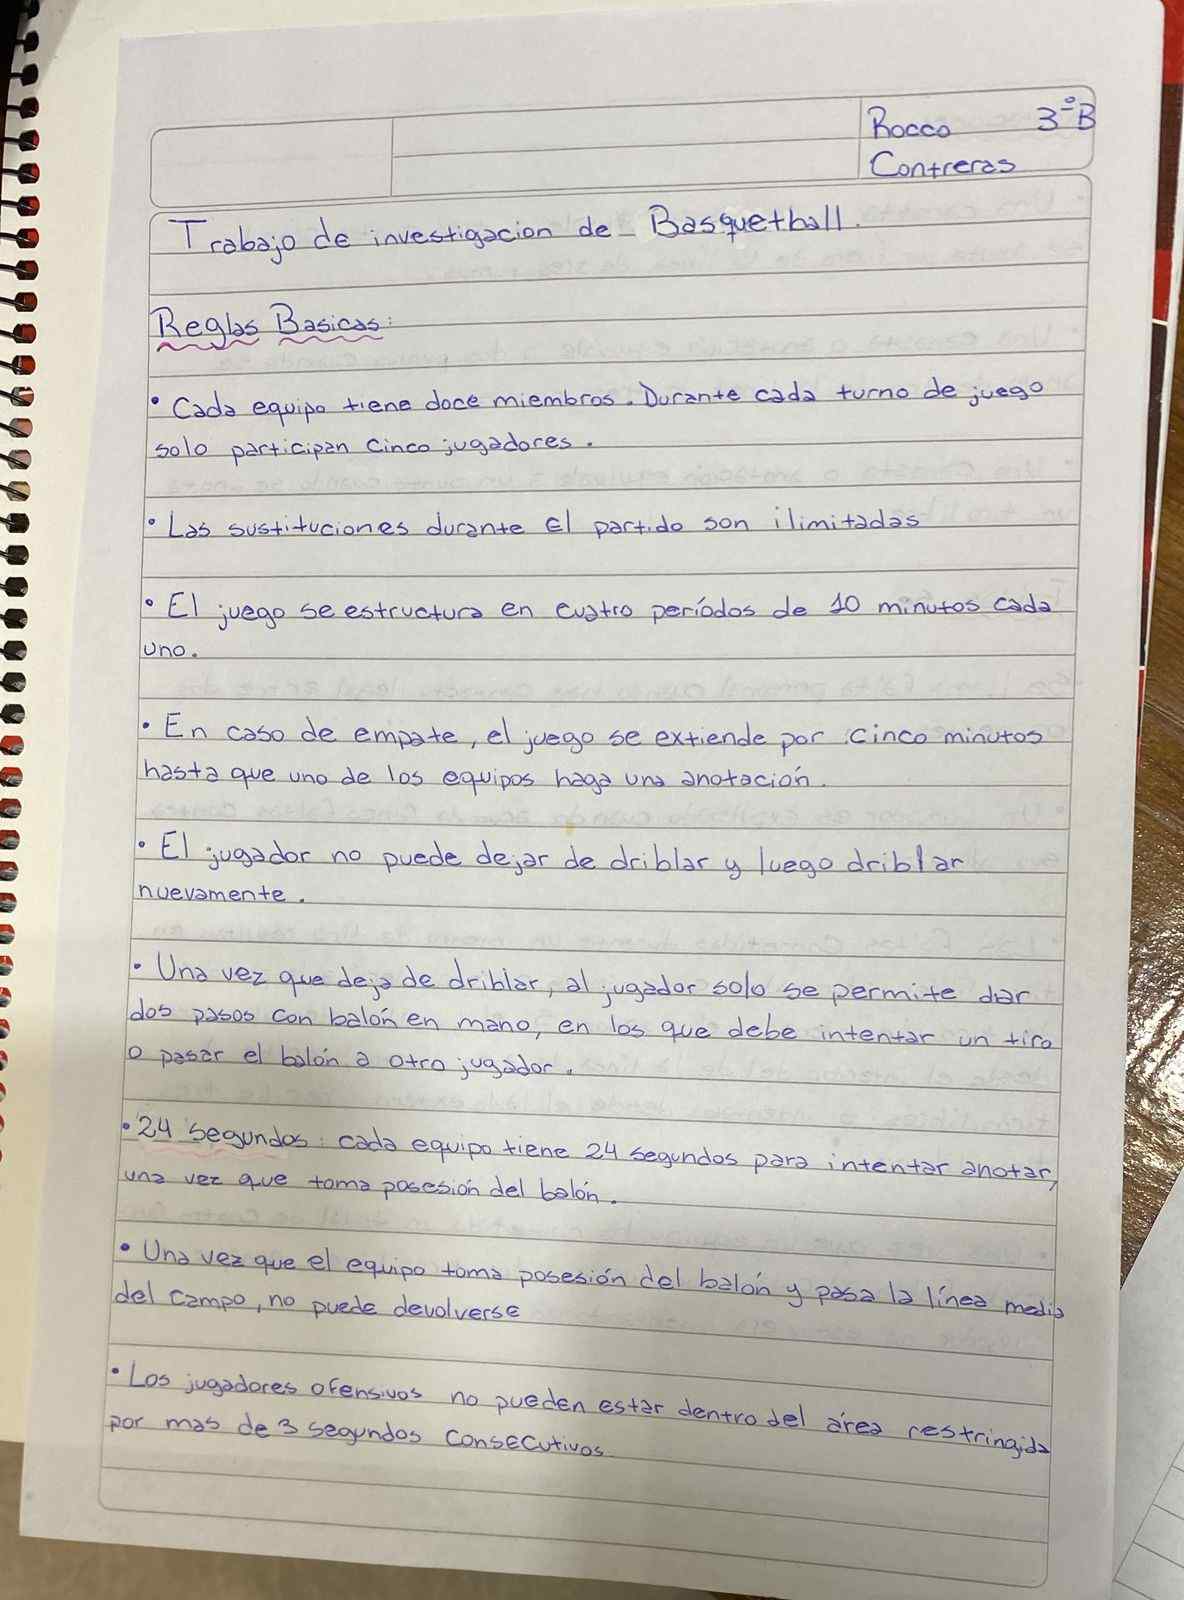 Rocco 3ºB
Contreras
Trabajo de investigacion de Basquetball.
Reglas Basicas:
• Cada equipo tiene doce miembros. Durante cada turno de juego
solo participan cinco jugadores.
• Las sustituciones durante El partido son ilimitadas
• El juego se estructura en cuatro períodos de 10 minutos cada
uno.
• En caso de empate, el juego se extiende por cinco minutos
hasta que uno de los equipos haga una anotación.
• El jugador no puede dejar de driblar y luego driblar
nuevamente.
• Una vez que deja de driblar, al jugador solo se permite dar
dos pasos con balón en mano, en los que debe intentar un tiro
o pasar el balón a otro jugador.
• 24 segundos: cada equipo tiene 24 segundos para intentar anotar,
una vez que toma posesión del balón.
• Una vez que el equipo toma posesión del balón y pasa la línea media
del campo, no puede devolverse
• Los jugadores ofensivos no pueden estar dentro del área restringida
por mas de 3 segundos consecutivos